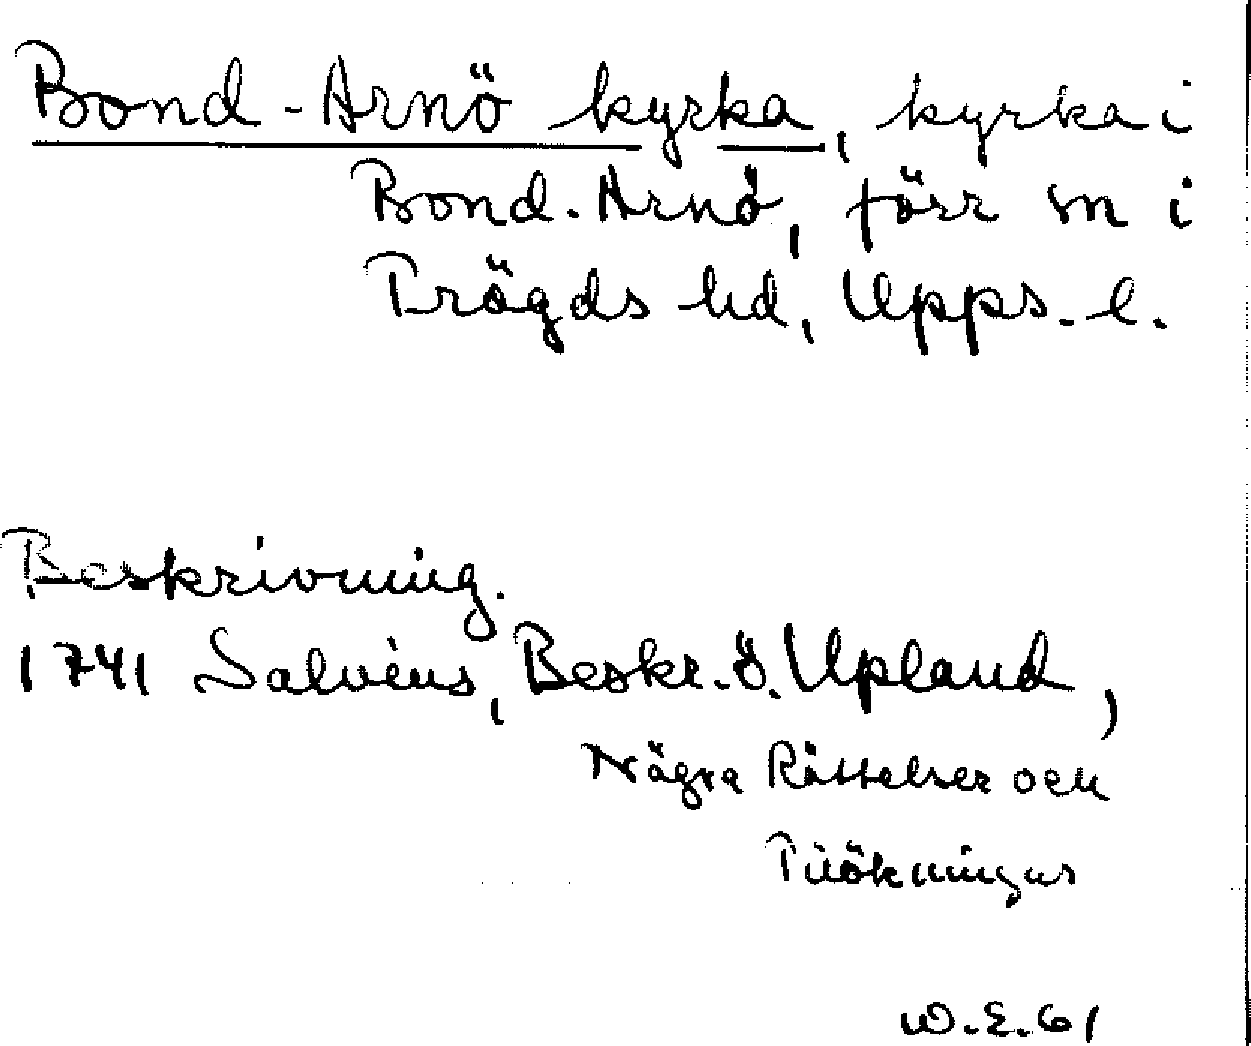 Bond-Arnö kyrka, kyrka i
Bond-Arnö, förr sn i
Trögds hd, Upps. l.
Beskrivning.
1741 Salvius, Beskr. ö. Upland,
Några Rättelser och
Tilökningar
W.E. 61